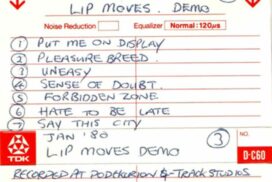 LIP MOVES. DEMO
Noise Reduction Equalizer Normal:120μs
1 PUT ME ON DISPLAY
2 PLEASURE BREED.
3 UNEASY
4 SENSE OF DOUBT.
5 FORBIDDEN ZONE.
6 HATE TO BE LATE
7 SAY THIS CITY
JAN '80
LIP MOVES DEMO
3
NO.
TDK
D-C60
RECORDED AT 8-TRACK STUDIOS